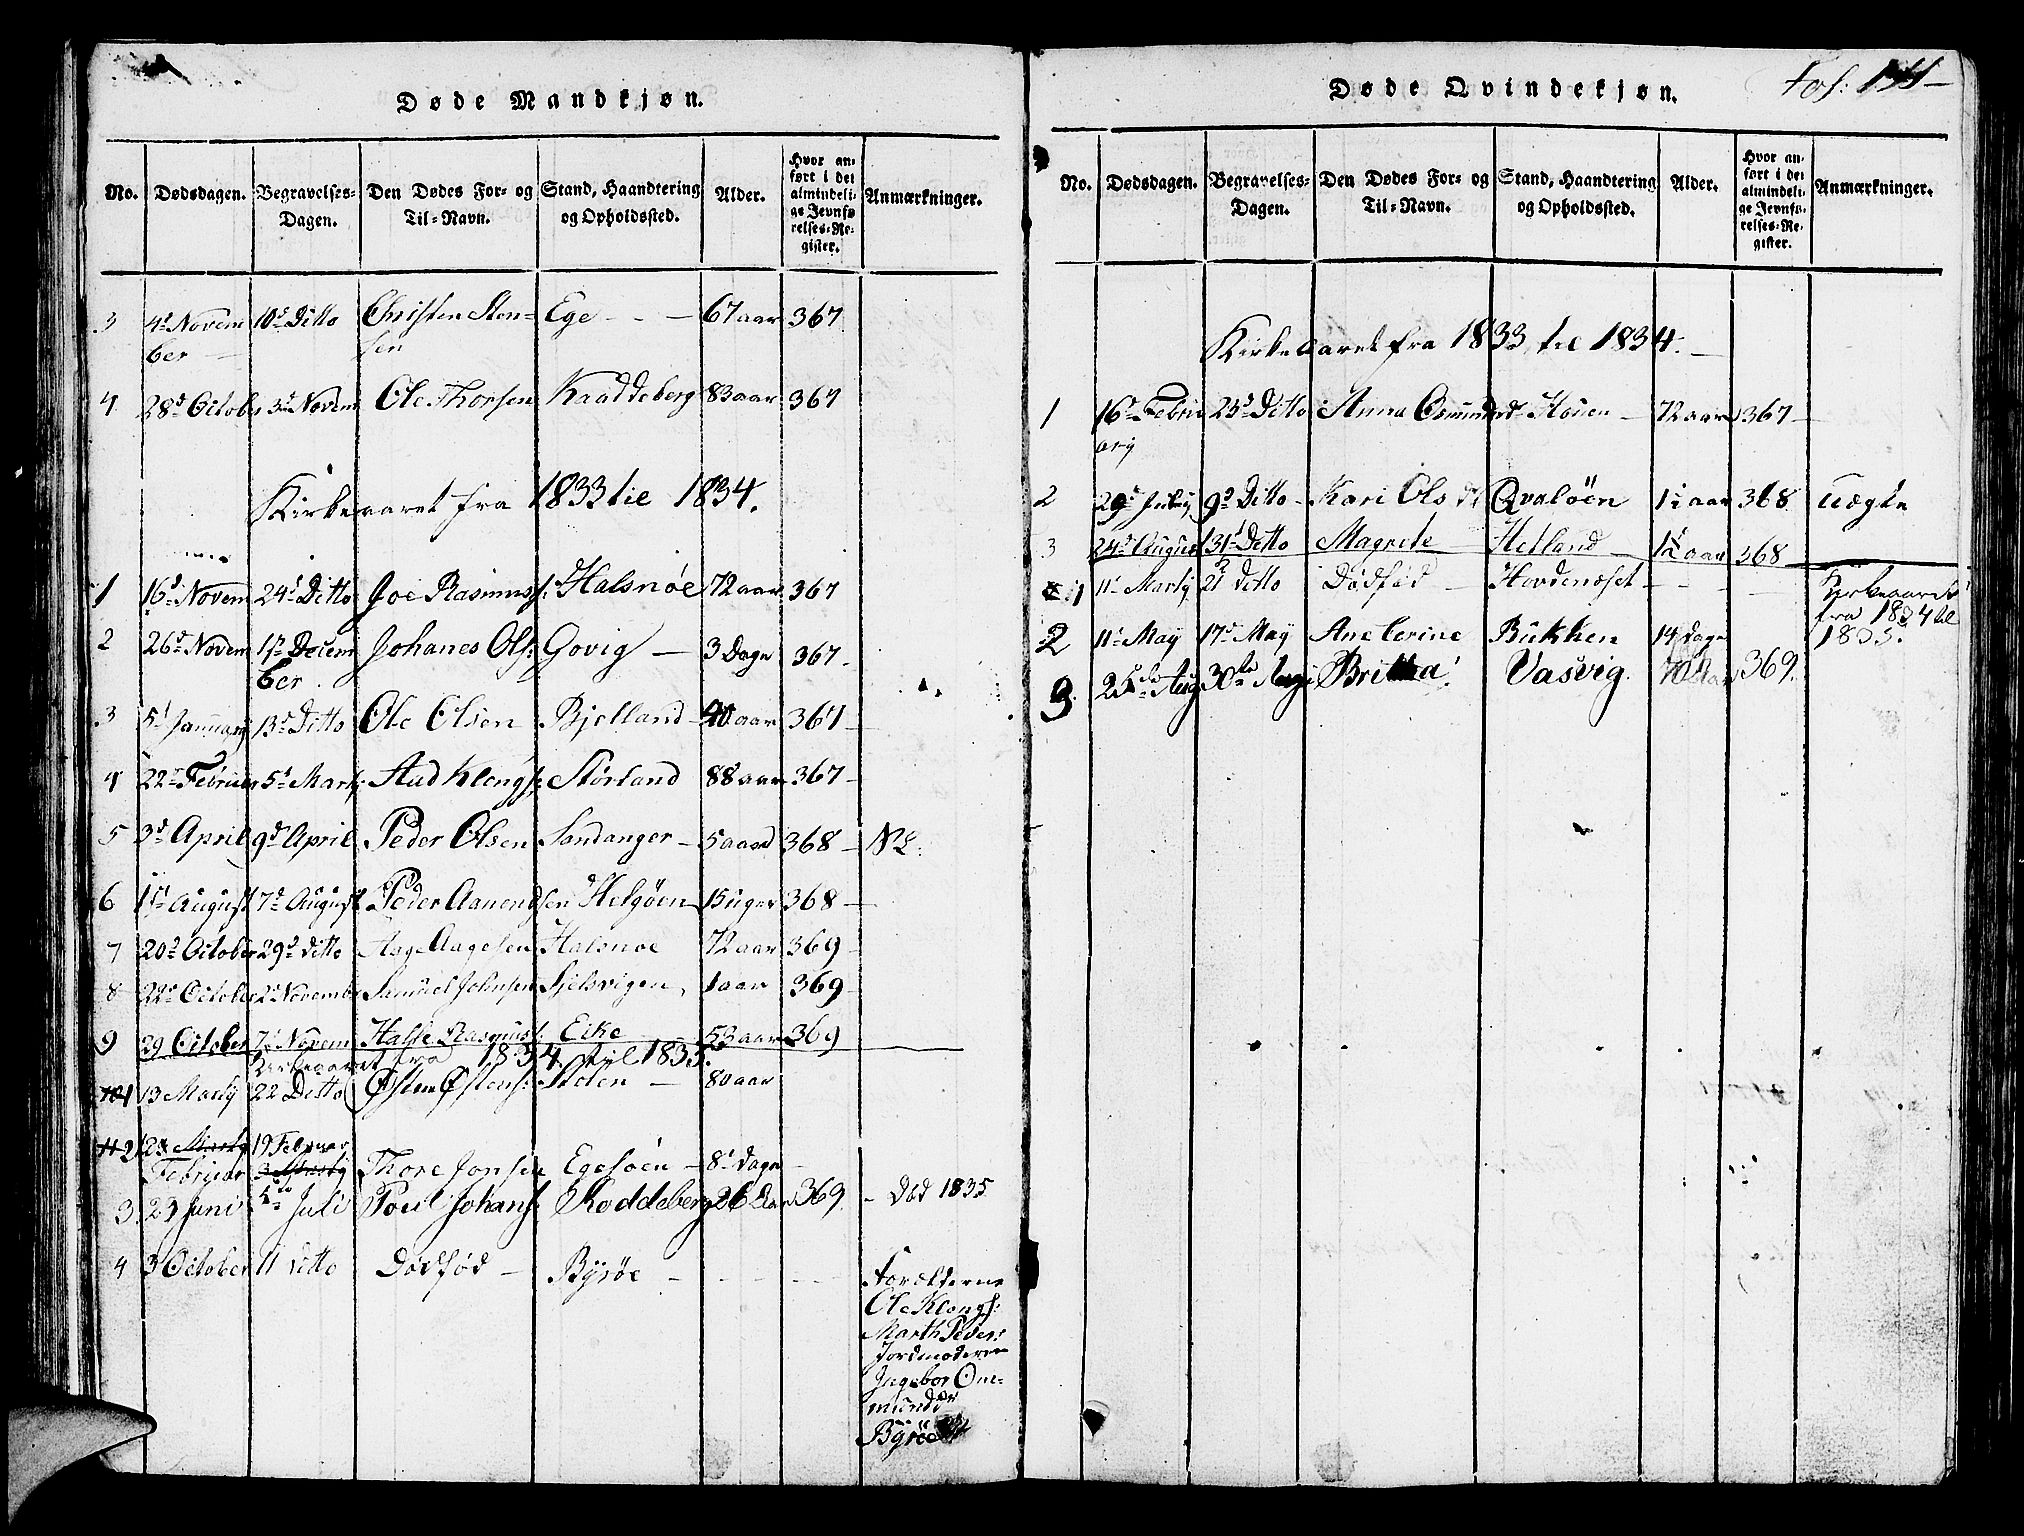 Døde Mandkjøn.
No. Dødsdagen. Begravelses-Dagen. Den Dødes For- og Til-Navn. Stand, Haandtering og Opholdssted. Alder. Hvor anført i det almindelige Jevnførelses-Register. Anmærkninger.
3 4d Novem 10d Ditto Christen Sten= Ege - - 67 aar 367
ber sen
4 28d Octobe 3d Novem Ole Thorsen Kaaddeberg 83 aar 367
Kirkeaaret fra 1833 til 1834.
1 16d Novem 24d Ditto Joe Rasmuss: Halsnøe 72 aar 367
2 26d Novem 1ste Decem Johanes Ols: Govig — 3 Dage 367
ber
3 5d Januarj 13d Ditto Ole Olsen Bjelland 40 aar 367
4 22d Februar 5d Marts Aad Klengs: Størland 88 aar 367
5 3d April 9d April Peder Olsen Sandanger 5 aar 368 NB.
6 1st August 7d August Peder Aanendsen Helgøen 15 uger 368
7 20d October 29d ditto Aage Aagesen Halsnøe 72 aar 369
8 22d October 2d Novembe Samuel Johnsen Sjelsvigen 1 aar 369
9 29 October 7d Novem Halste Rasmuss: Eike 53 aar 369
Kirkeaaret fra 1834 til 1835.
1 13 Martij 22 Ditto Østen Østens: Stolen — 80 aar
2 Martij 19 Februar
Februar 3 Martij Thore Jonsen Egesøen — 8 Dage
3. 23 Juni Juli Poul Johans: Koddeberg 26 Aar 369. - Død 1835
4 3 October 11 ditto Dødfød — Byrøe
Forælderne
Ole Klengs:
Marth Peders:
Jordmoderen
Ingebor One=
mundsdr
Byrøe
Døde Qvindekjøn. Fol: 144
No. Dødsdagen. Begravelses-Dagen. Den Dødes For- og Til-Navn. Stand, Haandtering og Opholdssted. Alder. Hvor anført i det almindelige Jevnførelses-Register. Anmærkninger.
Kirkeaaret fra 1833 til 1834.
1 16d Febru 23d Ditto Anna Osmundsd Houen 72 aar 367
arij
2 29d Julij 9d Ditto Kari Ols dt Qvaløen 1½ aar 368 uægte
3 24d August 31d Ditto Magrete Hetland 1½ aar 368
1 11d Martij 21 Ditto Dødfød Hovdenæset
Kirkeaaret
fra 1834 til
1835.
2 11d May 17d May Ane Cerine Bukken 14 Dage
3. 25de Aug 30te Aug Britha Vasvig 369.